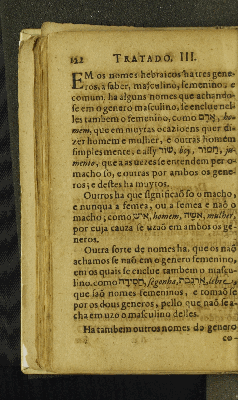 122 TRATADO. III.
EM os nomes hebraicos ha tres gene-
ros, a saber, masculino, femenino, e
comum. ha alguns nomes que achando-
se em o genero masculino, se enclue nel-
les tambem o femenino, como אדם, ho-
mem, que em muytas ocazioens quer di-
zer homem e mulher, e outras homem
simplesmente, e assy שור, boy, חמור, ju-
mento, que as vezes se entendem por o
macho só, e outras por ambos os gene-
ros; e destes ha muytos.
Outros ha que significaõ so o macho,
e nunqua a femea, ou a femea e naõ o
macho; como איש, homem, אשה, mulher,
por cuja cauza se uzaõ em ambos os gê-
neros.
Outra sorte de nomes ha, que os naõ
achamos se naõ em o genero femenino,
em os quais se enclue tambem o mascu-
lino. como חסידה, segonha, ארנבת, lebre,
que saõ nomes femeninos, e tomaõ se
por os dous generos, pello que naõ se a-
cha em uzo o masculino delles.
Ha tambem outros nomes do genero
co-